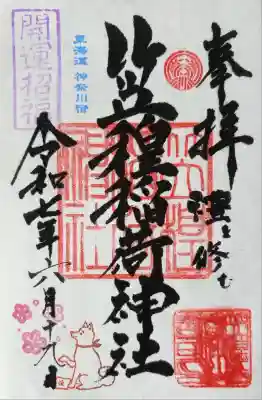 奉拝
笠䅣稲荷神社
東海道 神奈川宿
開運招福
令和七年六月十九日